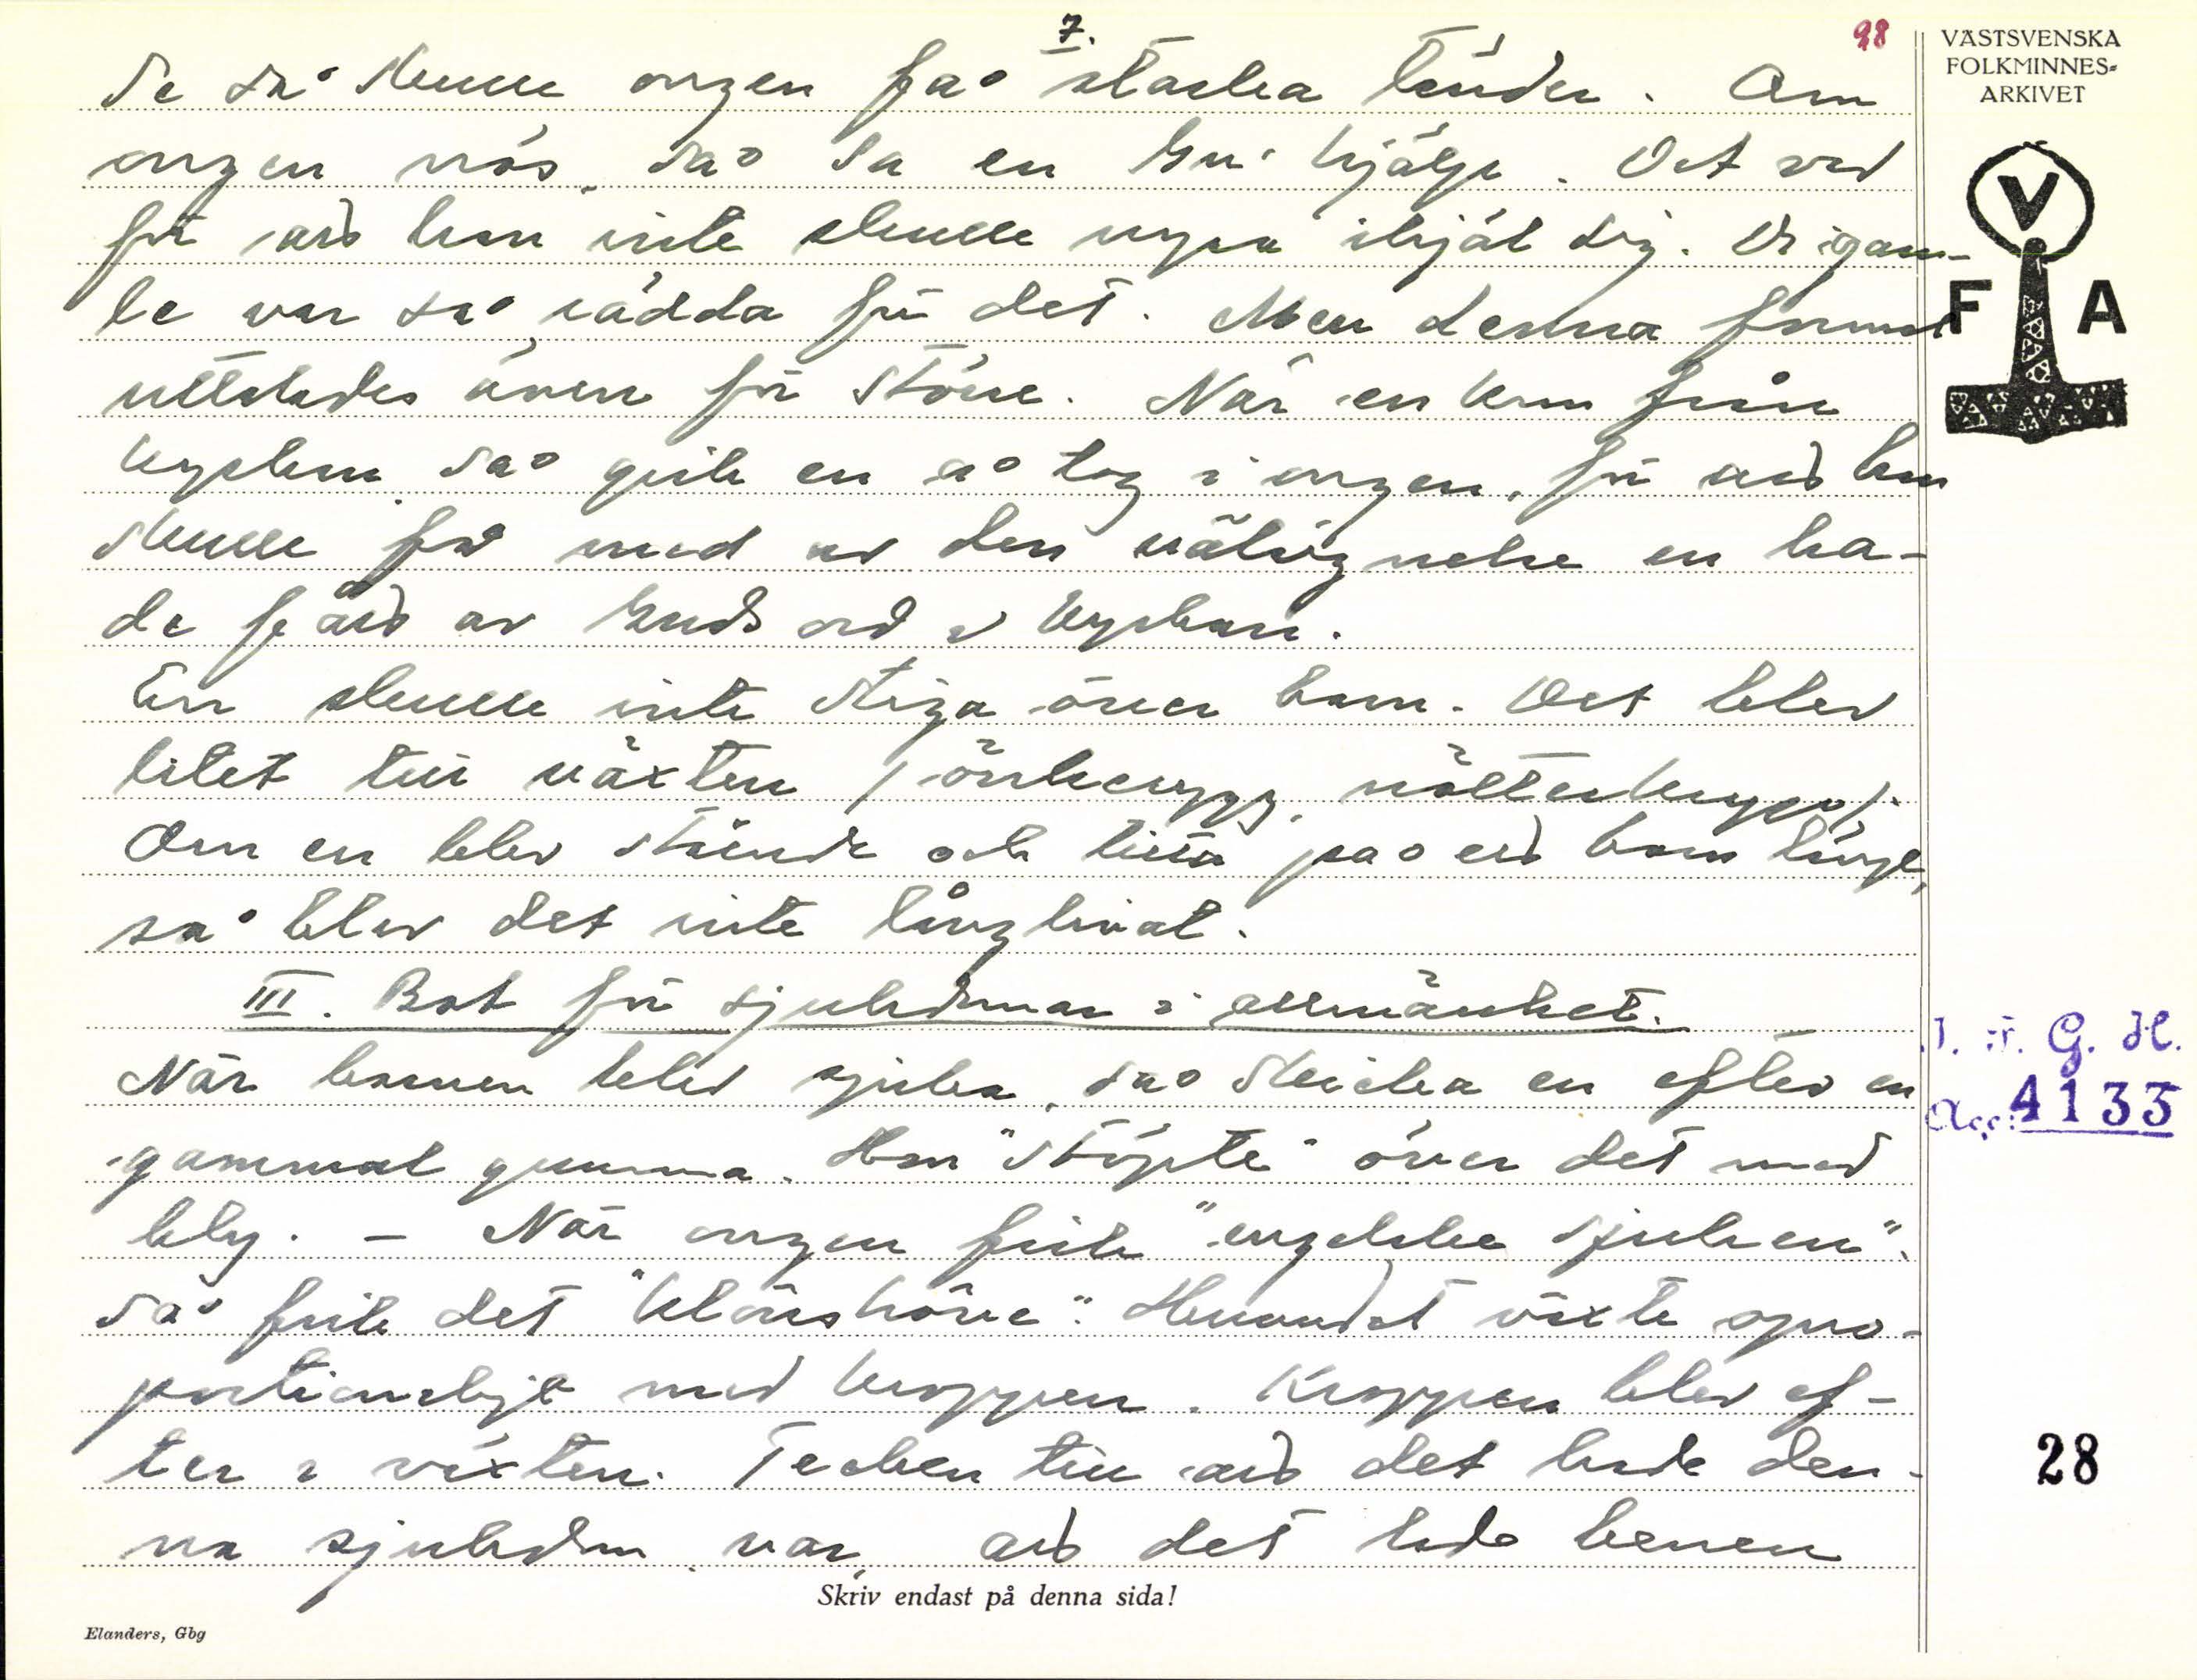 7.
98
VÄSTSVENSKA
FOLKMINNES-
ARKIVET
V
F A
de så skulle ongen få starka tänder. Om
ongen nös, så sa en Gu' hjälpe. Det va
för att han inte skulle nysa ihjäl sig. De gam-
le var så rädda för det. Men denna formel
uttalades även för större. När en kom från
kyrkan så gick en å tog i ongen, för att han
skulle få med av den välsignelse en ha-
de fått av Guds ord i kyrkan.
En skulle inte stiga över barn. Det blev
litet till växten /
Om en blev stående och titta på ett barn länge,
så blev det inte långlivat.
III. Bot för sjukdomar i allmänhet.
När barnen blev sjuka, så skicka en efter en
gammal gumma. Hon "stöpte" över det med
bly. – När ongen fick "engelska sjukan",
så fick det "klöushöue". Huvudet växte opro-
portionerligt med kroppen. Kroppen blev ef-
ter i växten. Tecken till att det hade den-
na sjukdom, var att det hade benen
J. F. G. H.
Acc: 4133
28
Skriv endast på denna sida!
Elanders, Gbg